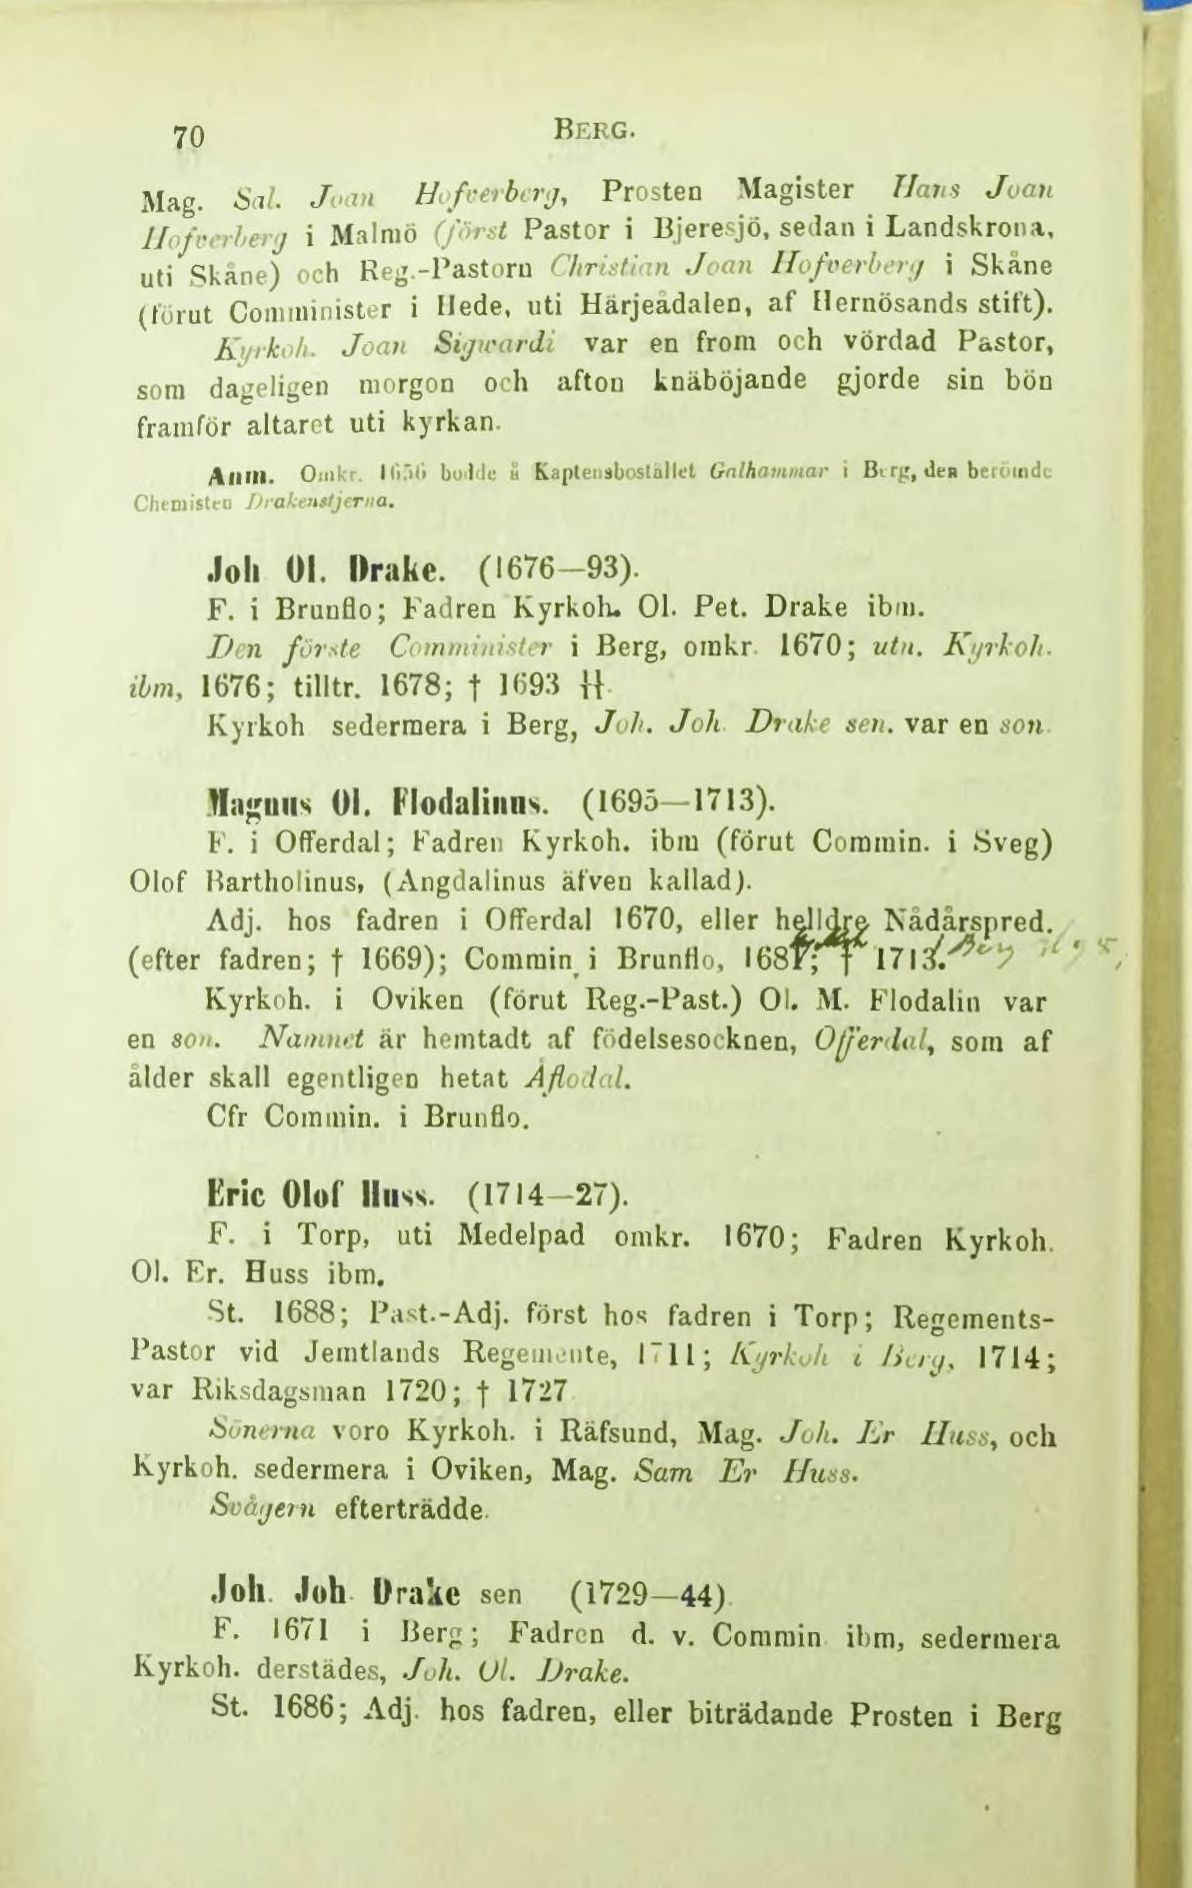 70
BERG.
Mag. Sal. Joan Hofverberg, Prosten Magister Hans Joan
Hofverberg i Malmö (först Pastor i Bjeresjö, sedan i Landskrona,
uti Skåne) och Reg.-Pastorn Christian Joan Hofverberg i Skåne
(förut Comminister i Hede, uti Härjeådalen, af Hernösands stift).
Kyrkoh. Joan Sigwardi var en from och vördad Pastor,
som dageligen morgon och afton knäböjande gjorde sin bön
framför altaret uti kyrkan.
Anm. Omkr. 1656 bodde å Kaptensbostället Galhammar i Berg, den berömde
Chemisten Drakenstjerna.
Joh Ol. Drake. (1676—93).
F. i Brunflo; Fadren Kyrkoh. Ol. Pet. Drake ibm.
Den förste Comminister i Berg, omkr. 1670; utn. Kyrkoh.
ibm, 1676; tilltr. 1678; † 1693
Kyrkoh sedermera i Berg, Joh. Joh. Drake sen. var en son.
Magnus Ol. Flodalinus. (1695—1713).
F. i Offerdal; Fadren Kyrkoh. ibm (förut Commin. i Sveg)
Olof Bartholinus, (Angdalinus äfven kallad).
Adj. hos fadren i Offerdal 1670, eller helldre Nådårspred.
(efter fadren; † 1669); Commin. i Brunflo, 1687; † 1713. i Berg 1695,
Kyrkoh. i Oviken (förut Reg.-Past.) Ol. M. Flodalin var
en son. Namnet är hemtadt af födelsesocknen, Offerdal, som af
ålder skall egentligen hetat Åflodal.
Cfr Commin. i Brunflo.
Eric Olof Huss. (1714—27).
F. i Torp, uti Medelpad omkr. 1670; Fadren Kyrkoh.
Ol. Er. Huss ibm.
St. 1688; Past.-Adj. först hos fadren i Torp; Regements-
Pastor vid Jemtlands Regemente, 1711; Kyrkoh i Berg, 1714;
var Riksdagsman 1720; † 1727
Sönerna voro Kyrkoh. i Räfsund, Mag. Joh. Er Huss, och
Kyrkoh. sedermera i Oviken, Mag. Sam Er Huss.
Svågern efterträdde.
Joh. Joh Drake sen (1729—44)
F. 1671 i Berg; Fadren d. v. Commin ibm, sedermera
Kyrkoh. derstädes, Joh. Ol. Drake.
St. 1686; Adj. hos fadren, eller biträdande Prosten i Berg